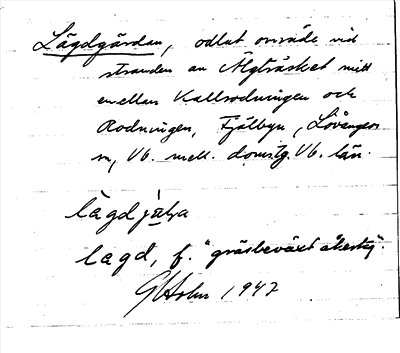 Lägdgärdan, odlat område vid
stranden av Älgträsket mitt
emellan Kallrodningen och
Rodningen, Fjälbyn, Lövångers
sn, Vb. mell. doms.tg. Vb. län.
lägdjälṣa
lagd, f. "gräsbeväxt åkerstyc".
G Holm 1947